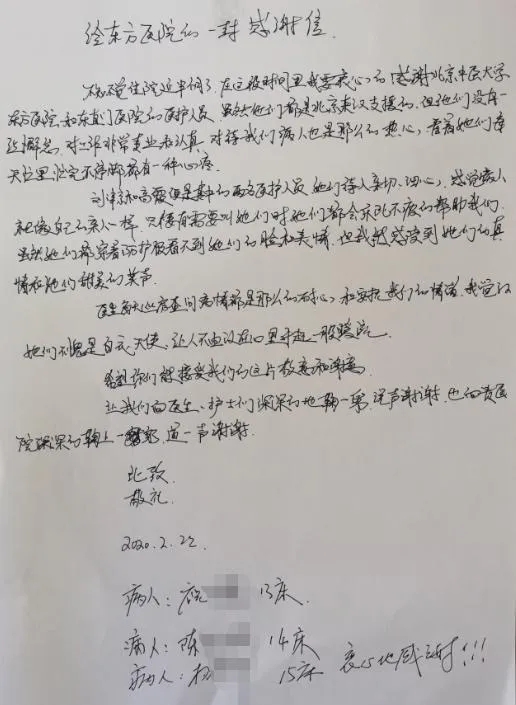 给东方医院的一封感谢信
我住院近半个月了,在这段时间里我要衷心的感谢北京中医大学
东方医院和东直门医院的医护人员,虽然他们都是北京来汉支援的,但他们没有一
丝懈怠,对工作非常专业和认真,对待我们病人也是那么的热心,看着她们每
天忙里忙完不停脚都有一种心疼。
刘 和高 便是其中的两名医护人员,她们待人亲切、细心,感觉病人
就像自己的亲人一样,只要有需要叫她们时她们都会不厌的帮助我们,
虽然她们都穿着防护服看不到她们的脸和表情,但我能感受到她们的真
情和她们甜美的笑声。
医生每天的查房查问病情都是那么的耐心,和安抚我们的情绪,我觉得
她们不愧是白衣天使,让人不由得从心里升起一股暖流。
希望你们能接受我们的这片敬意和谢意
让我们向医生、护士们深深的地鞠一躬,说声谢谢,也向贵医
院深深的鞠上一躬,道一声谢谢。
此致
敬礼
2020.2.22.
病人: 13床
病人:陈 14床
病人:杨 15床 衷心地感谢!!!